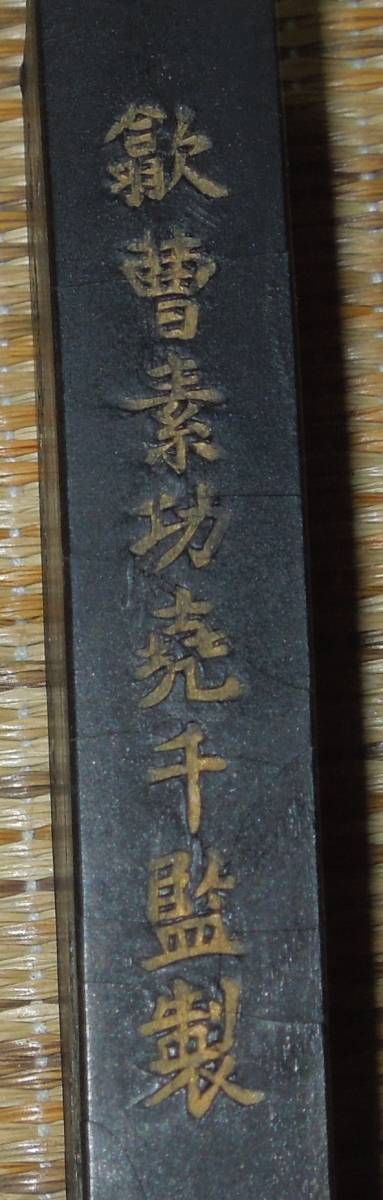 歙曹素功堯千監製